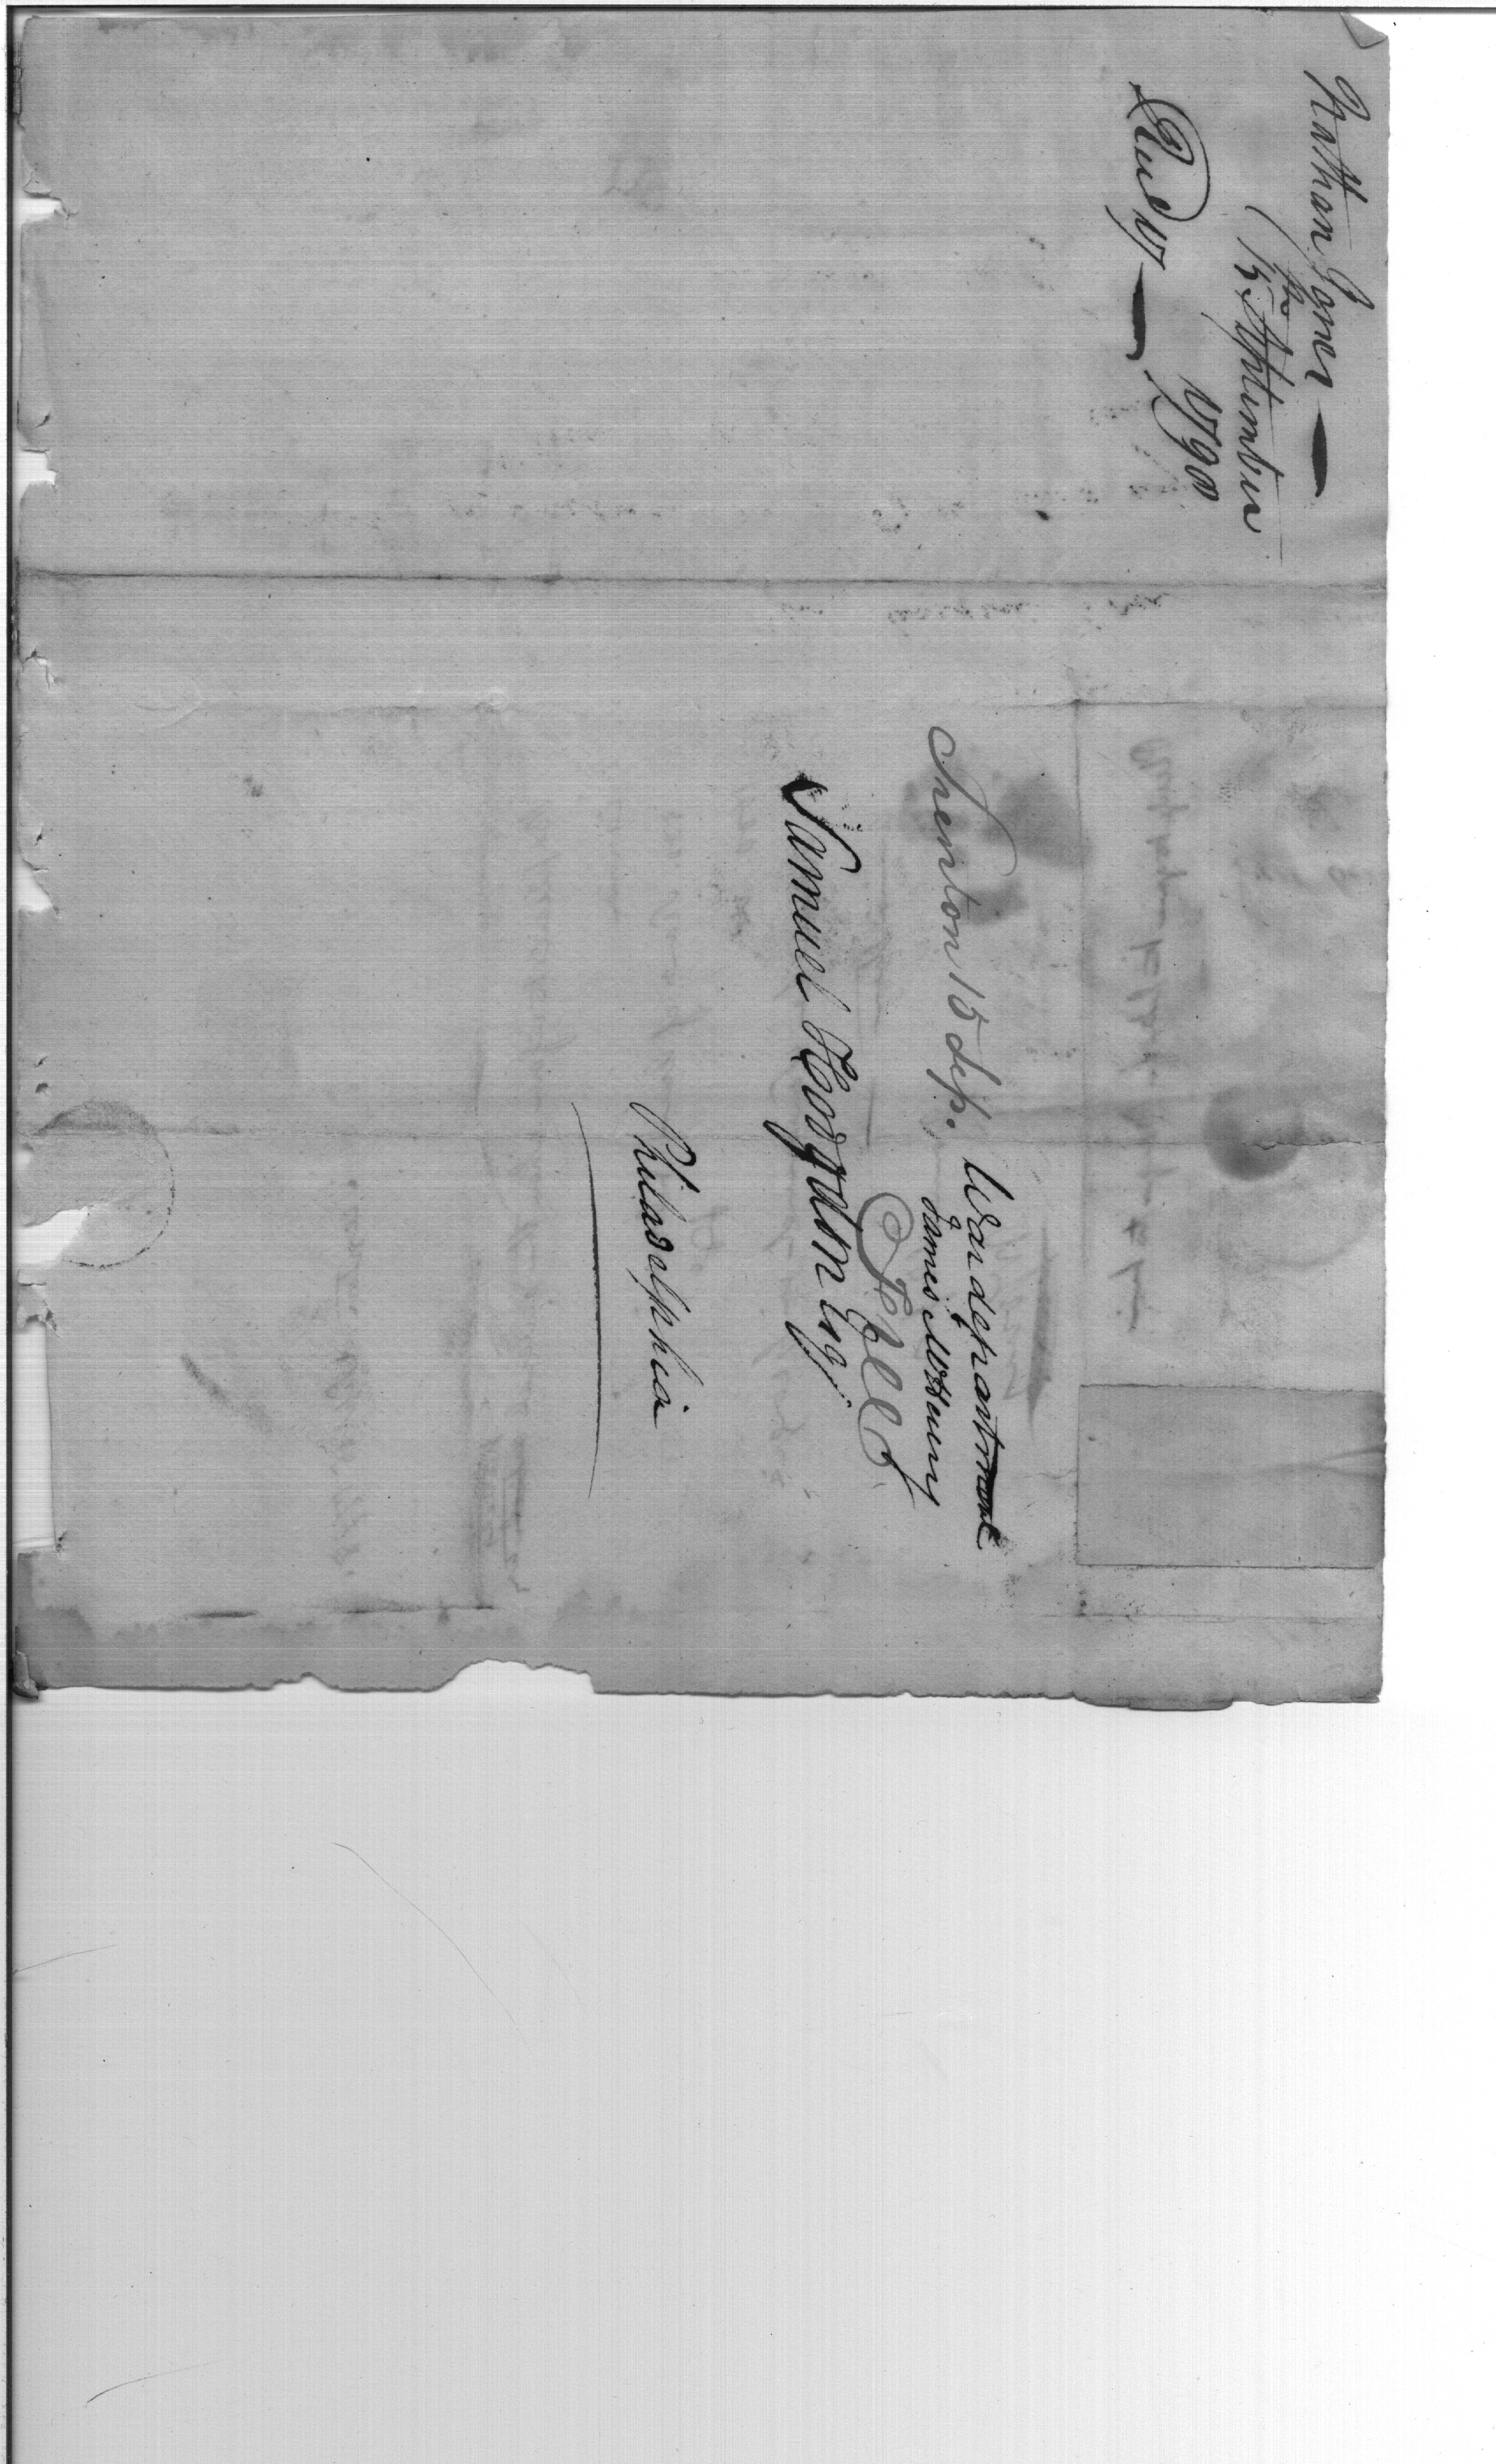 Nathan Jones —
15th September
1798
Rec'd 17 —
Trenton 15 Sep.
War department
James McHenry
Free
Samuel Hodgdon Esq.
Philadelphia